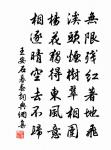 無限殘紅著地飛
溪頭煙樹翠相圍
楊花獨得東風意
相逐晴空去不歸
王安石